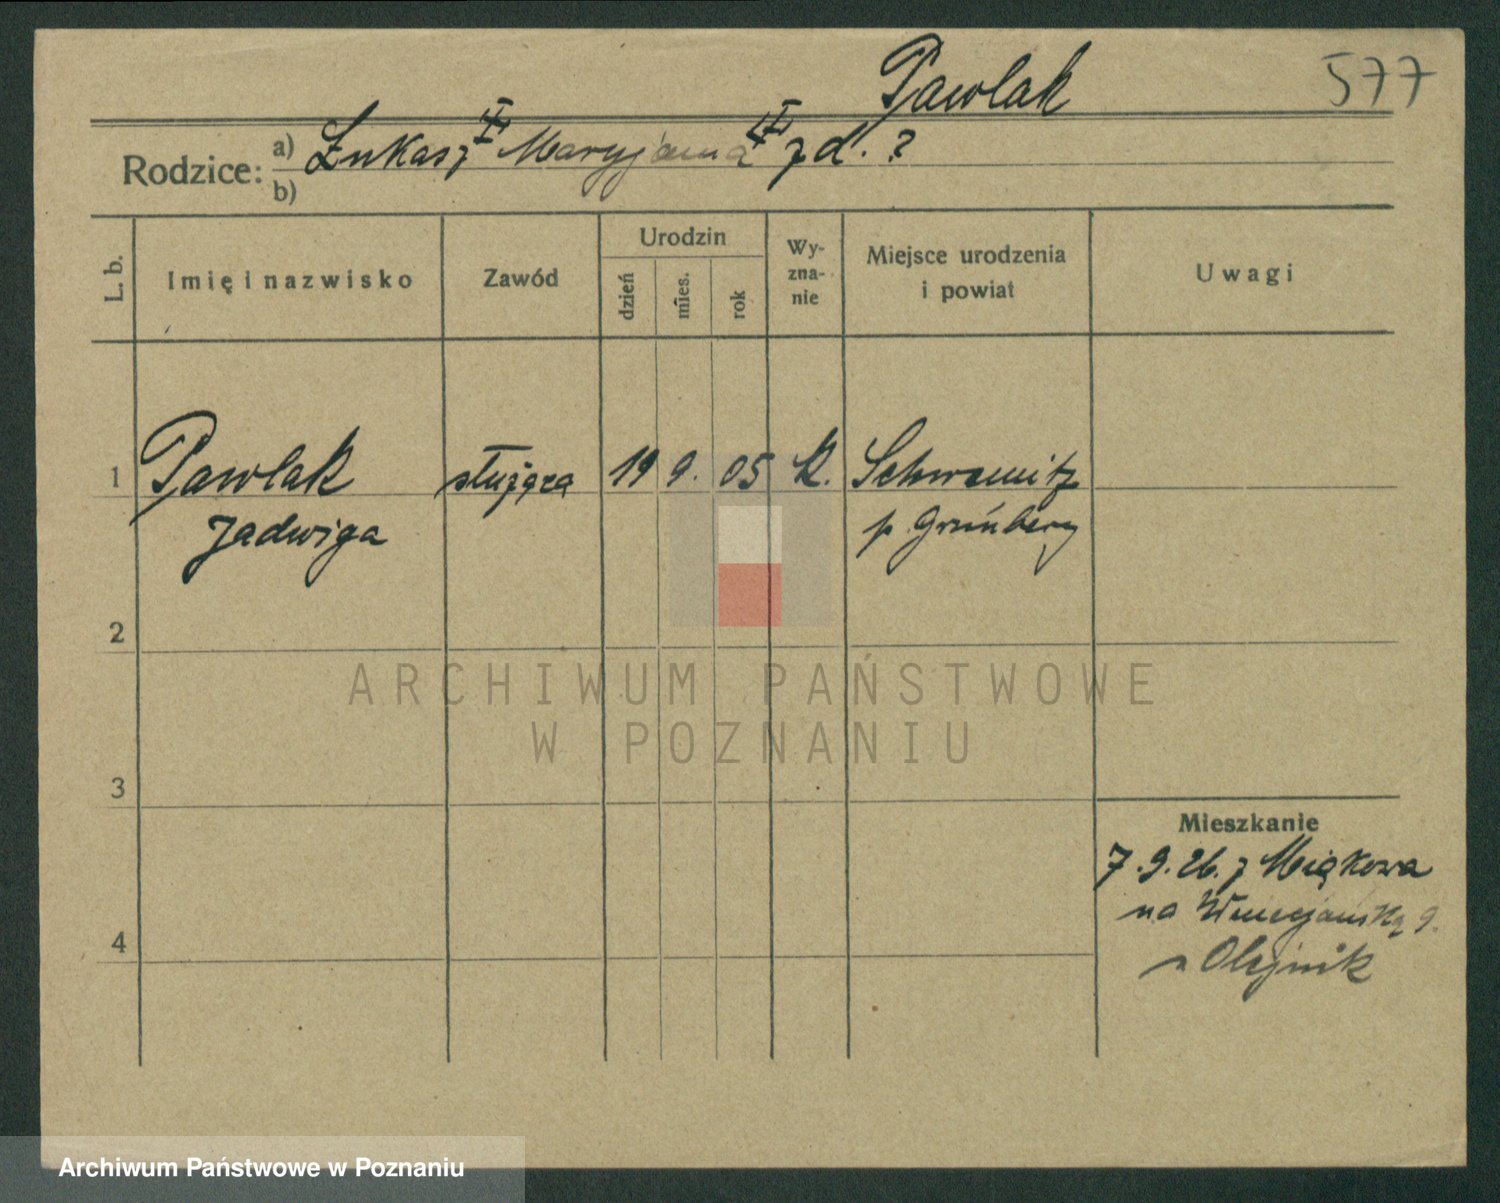 Pawlak
577
Rodzice:
a) Łukasz Maryjanna z d. ?
b)
L. b.
Imię i nazwisko
Zawód
Urodzin
dzień
mies.
rok
Wy-
zna-
nie
Miejsce urodzenia
i powiat
Uwagi
1 Pawlak służąca 19 9. 05 k.
Jadwiga
p Grünberg
2
ARCHIWUM PAŃSTWOWE
W POZNANIU
3
Mieszkanie
7.9.26. z
na 9.
Olejnik
4
Archiwum Państwowe w Poznaniu